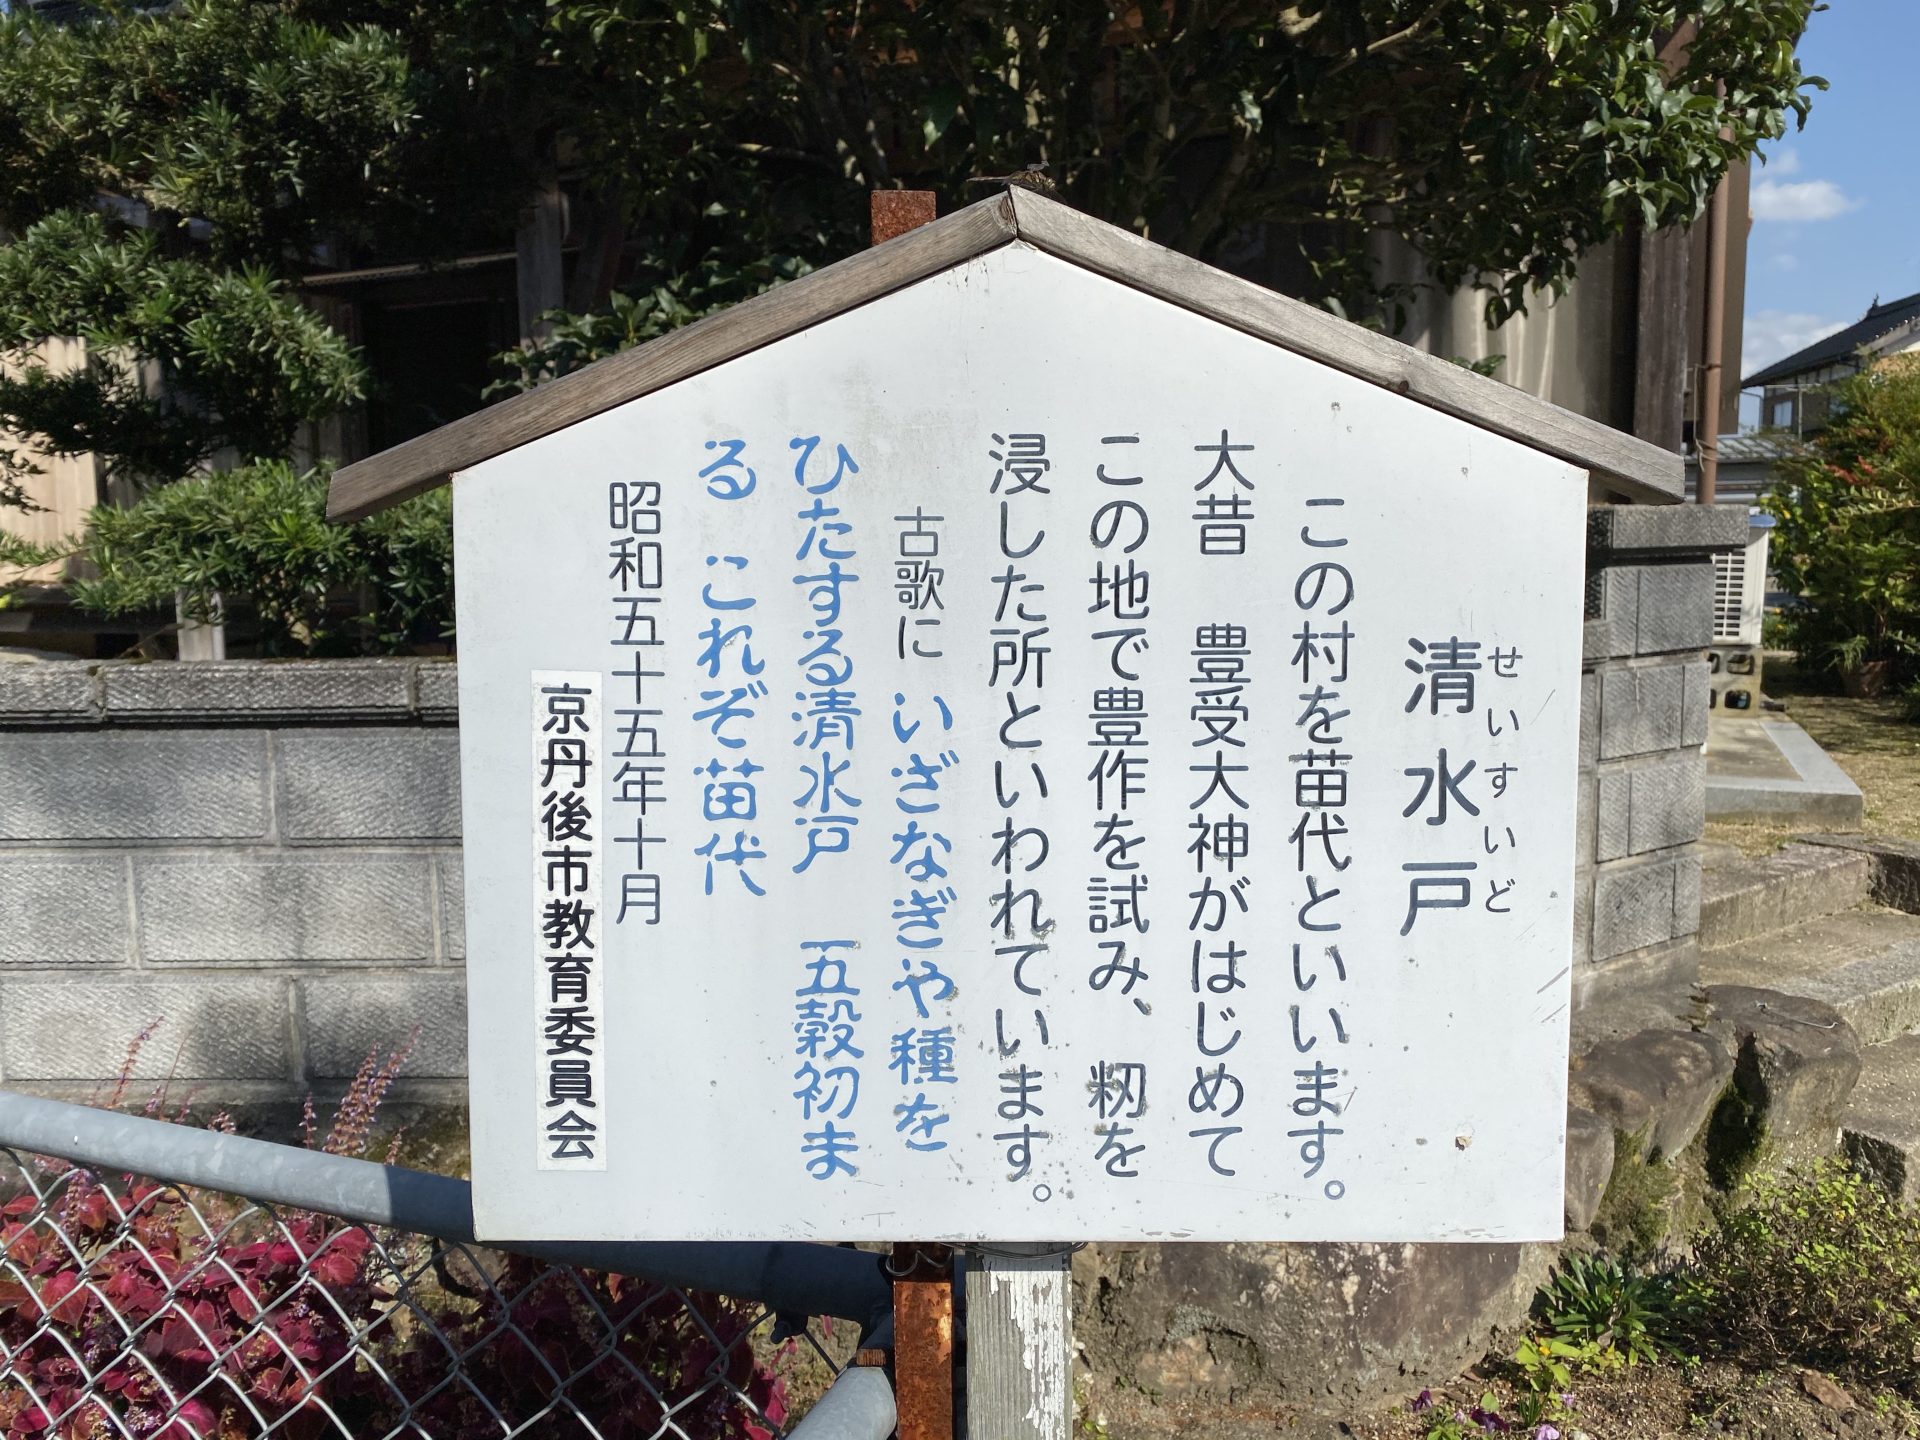 清水戸
せいすいど
この村を苗代といいます。
大昔　豊受大神がはじめて
この地で豊作を試み、籾を
浸した所といわれています。
古歌に　いざなぎや種を
ひたする清水戸　五穀初ま
る　これぞ苗代
昭和五十五年十月
京丹後市教育委員会